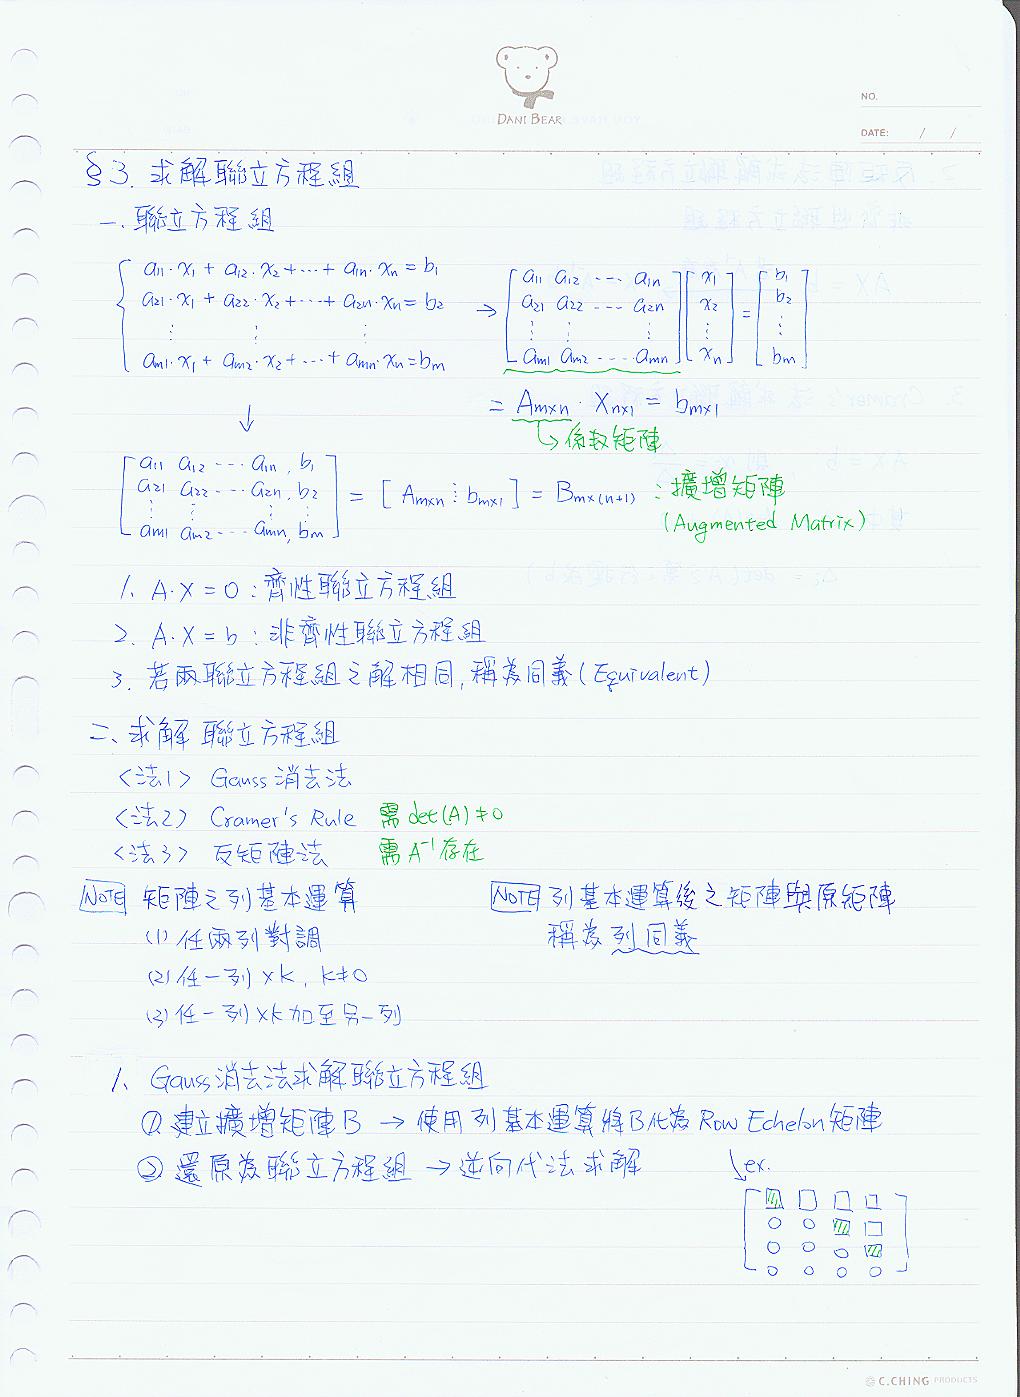 DANI BEAR
NO.
DATE: / /
§3. 求解聯立方程組
一. 聯立方程組
a11·x1 + a12·x2 + ··· + a1n·xn = b1
a21·x1 + a22·x2 + ··· + a2n·xn = b2
⋮ ⋮ ⋮
am1·x1 + am2·x2 + ··· + amn·xn = bm
→ [a11 a12 ··· a1n] [x1] = [b1]
[a21 a22 ··· a2n] [x2] [b2]
[⋮ ⋮ ⋮] [⋮] [⋮]
[am1 am2 ··· amn] [xn] [bm]
= Am×n · Xn×1 = bm×1
↳ 係數矩陣
↓
[a11 a12 ··· a1n, b1]
[a21 a22 ··· a2n, b2] = [Am×n ⋮ bm×1] = Bm×(n+1) : 擴增矩陣
[⋮ ⋮ ⋮ ⋮] (Augmented Matrix)
[am1 am2 ··· amn, bm]
1. A·X = 0 : 齊性聯立方程組
2. A·X = b : 非齊性聯立方程組
3. 若兩聯立方程組之解相同, 稱為同義 (Equivalent)
二、求解聯立方程組
<法1> Gauss 消去法
<法2> Cramer's Rule 需 det(A) ≠ 0
<法3> 反矩陣法 需 A⁻¹ 存在
NOTE 矩陣之列基本運算
(1) 任兩列對調
(2) 任一列 ×k, k≠0
(3) 任一列 ×k 加至另一列
NOTE 列基本運算後之矩陣與原矩陣
稱為列同義
1. Gauss 消去法求解聯立方程組
① 建立擴增矩陣 B → 使用列基本運算將 B 化為 Row Echelon 矩陣
② 還原為聯立方程組 → 逆向代法求解
↓ ex.
[□ □ □ □]
[0 0 □ □]
[0 0 0 □]
[0 0 0 0]
C.CHING PRODUCTS